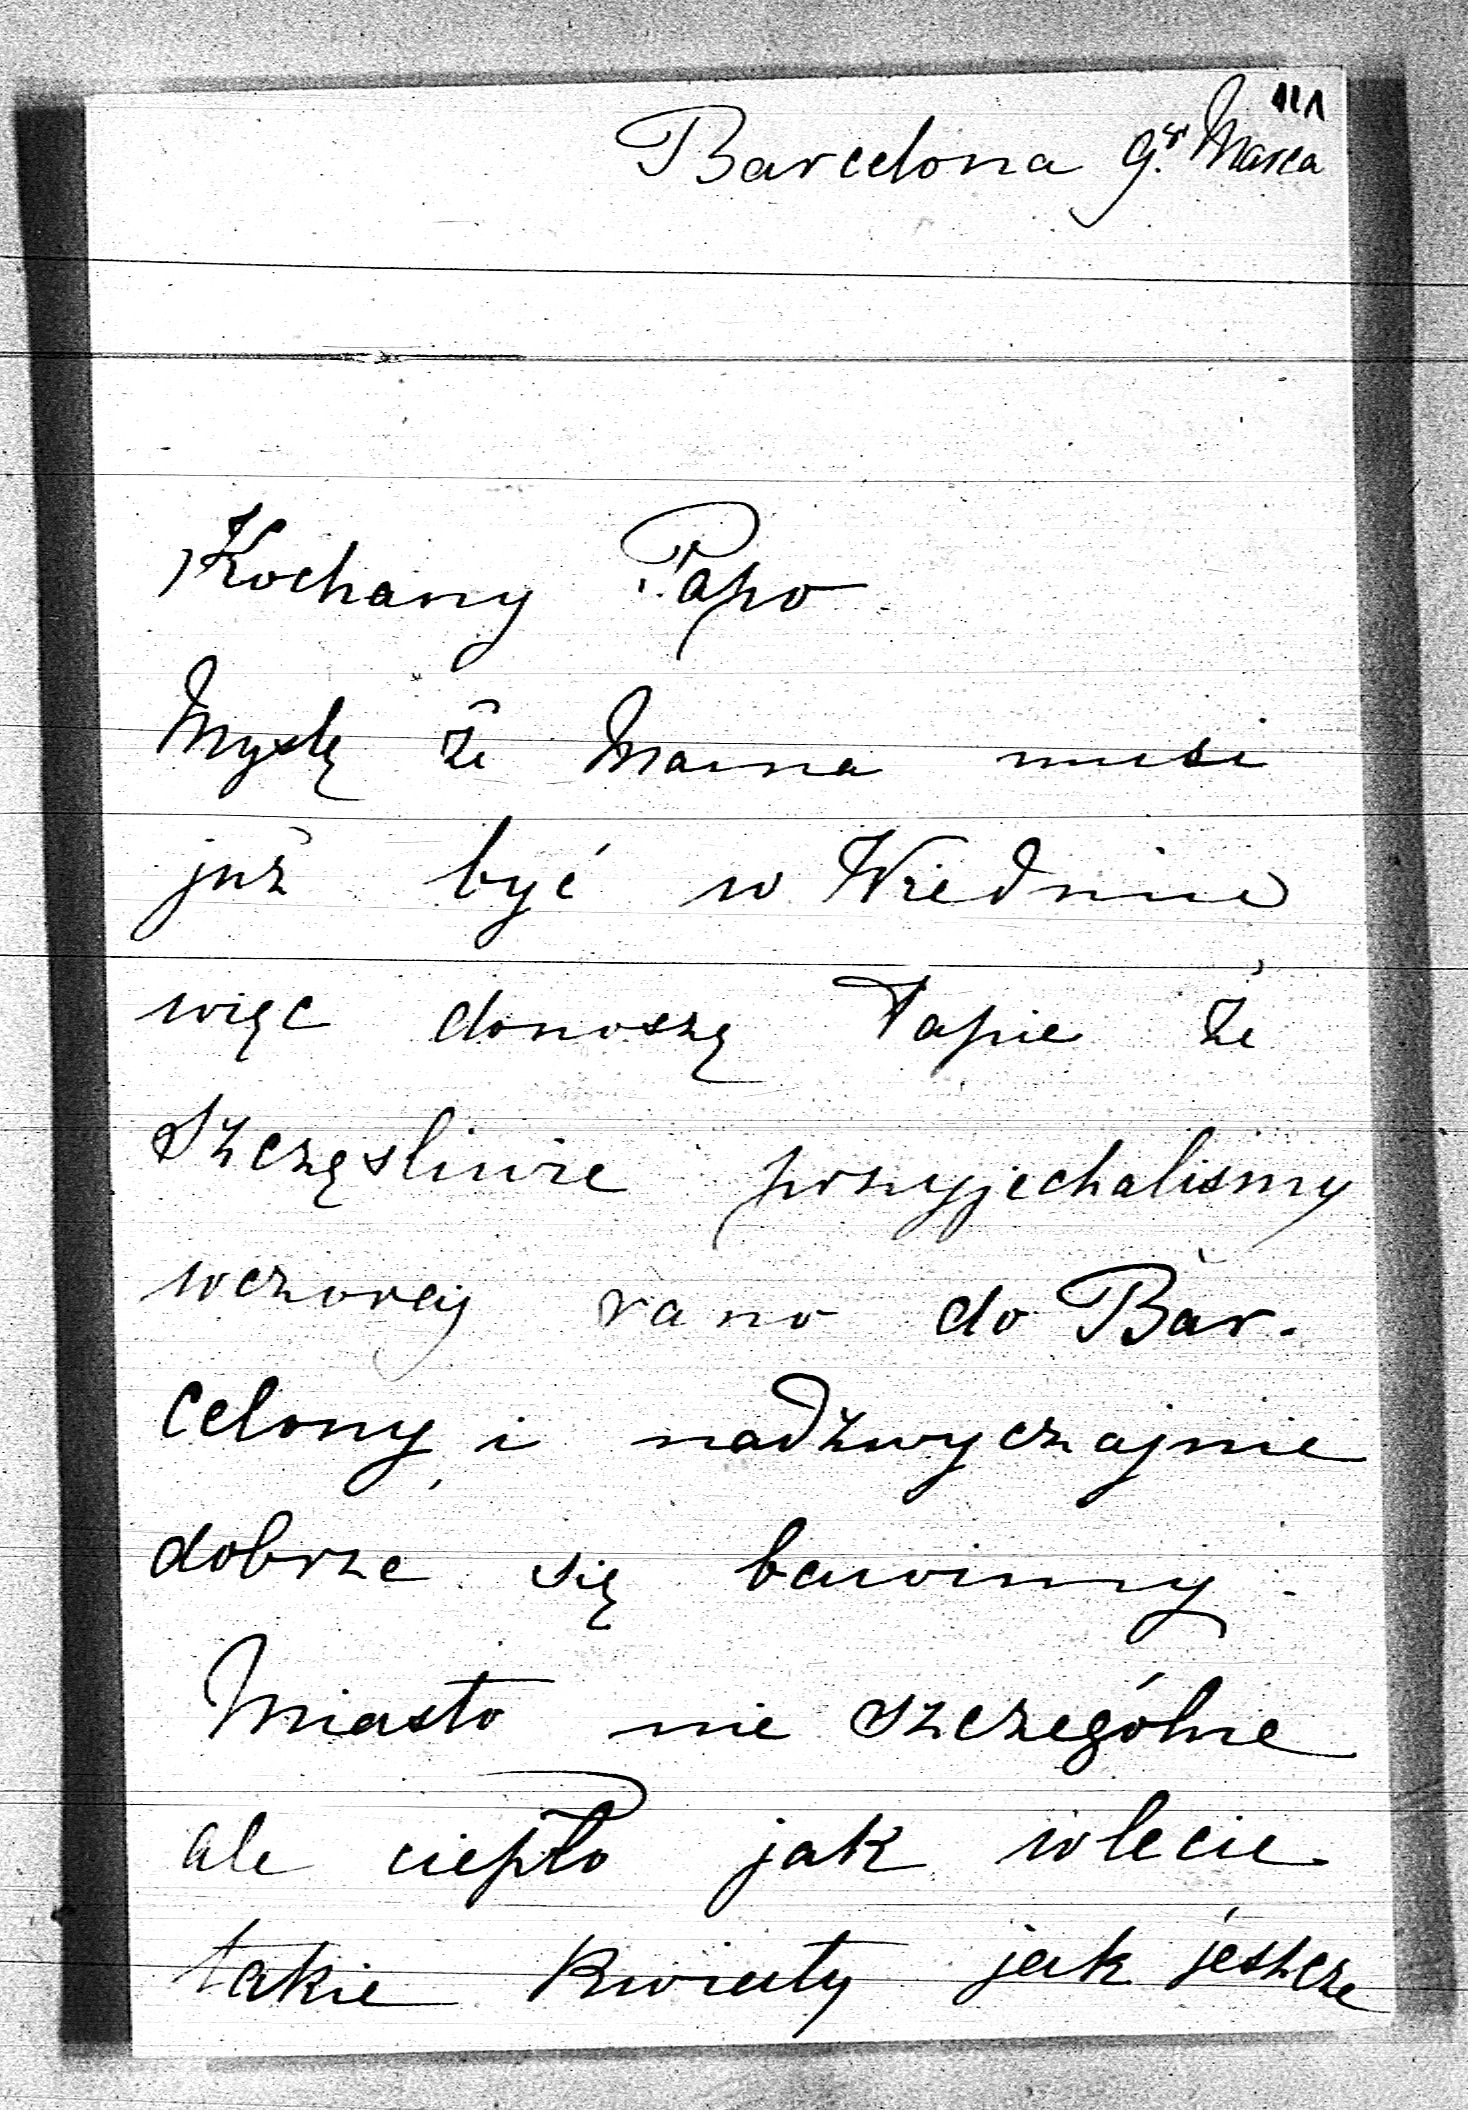 111
Barcelona 9go Marca
Kochany Papo
Myslę że Mama musi
już być w Wiedniu
więc donoszę Papie że
szczęsliwie przyjechalismy
wczoraj rano do Bar-
celony i nadzwyczajnie
dobrze się bawimy.
Miasto nie szczególne
ale ciepło jak w lecie
takie kwiaty jak jeszcze